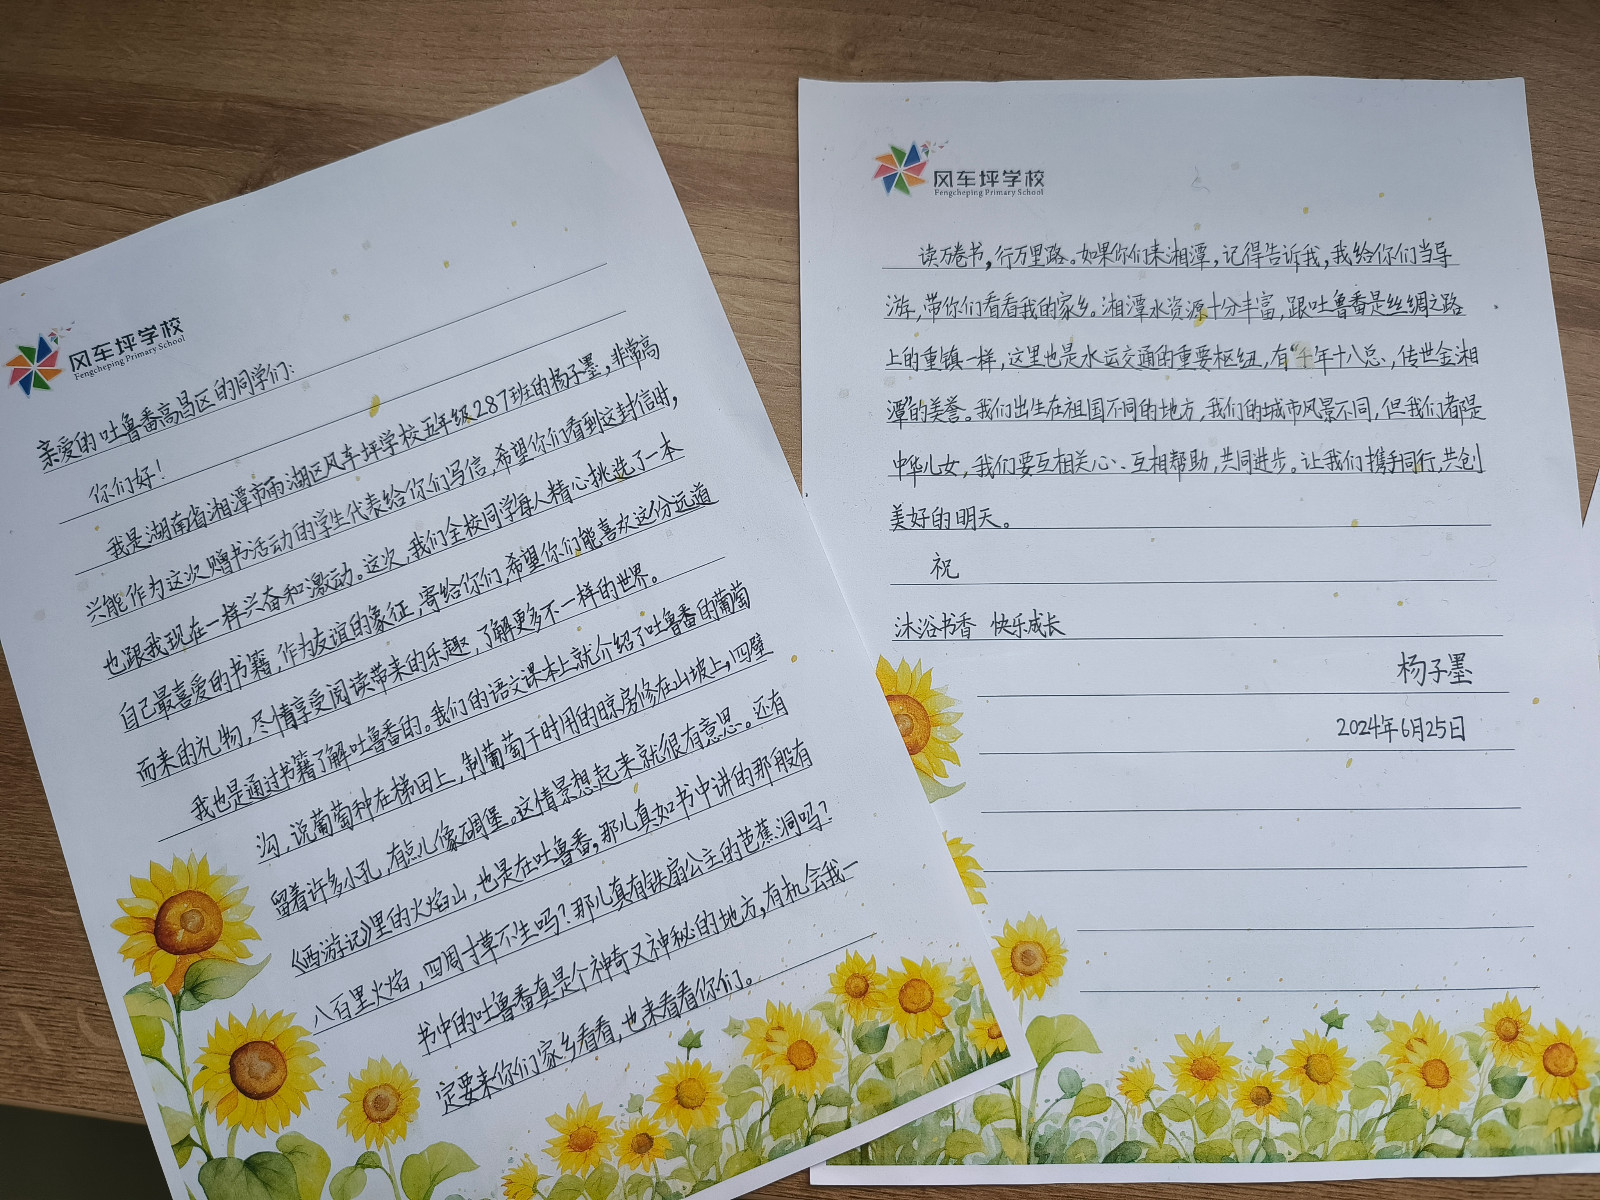 风车坪学校
Fengcheping Primary School
亲爱的吐鲁番高昌区的同学们:
你们好!
我是湖南省湘潭市雨湖区风车坪学校五年级287班的杨子墨,非常高
兴能作为这次赠书活动的学生代表给你们写信,希望你们看到这封信时,
也跟我现在一样兴奋和激动。这次,我们全校同学每人精心挑选了一本
自己最喜爱的书籍,作为友谊的象征,寄给你们,希望你们能喜欢这份远道
而来的礼物,尽情享受阅读带来的乐趣,了解更多不一样的世界。
我也是通过书籍了解吐鲁番的。我们的语文课本上就介绍了吐鲁番的葡萄
沟,说葡萄种在梯田上,制葡萄干时用的晾房修在山坡上,四壁
留着许多小孔,有点儿像碉堡。这情景想起来就很有意思。还有
《西游记》里的火焰山,也是在吐鲁番,那儿真如书中讲的那般有
八百里火焰,四周寸草不生吗?那儿真有铁扇公主的芭蕉洞吗?
书中的吐鲁番真是个神奇又神秘的地方,有机会我一
定要来你们家乡看看,也来看看你们。
风车坪学校
Fengcheping Primary School
读万卷书,行万里路。如果你们来湘潭,记得告诉我,我给你们当导
游,带你们看看我的家乡。湘潭水资源十分丰富,跟吐鲁番是丝绸之路
上的重镇一样,这里也是水运交通的重要枢纽,有“千年十八总,传世金湘
潭”的美誉。我们出生在祖国不同的地方,我们的城市风景不同,但我们都是
中华儿女,我们要互相关心、互相帮助,共同进步。让我们携手同行,共创
美好的明天。
祝
沐浴书香 快乐成长
杨子墨
2024年6月25日